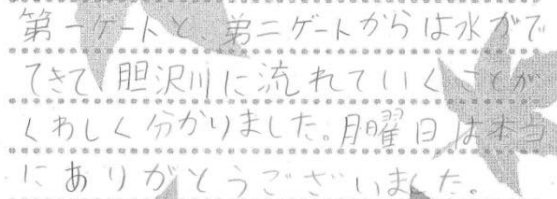 第一ゲートと、第二ゲートからは水がで
てきて、胆沢川に流れていくことが
くわしく分かりました。月曜日は本当
にありがとうございました。